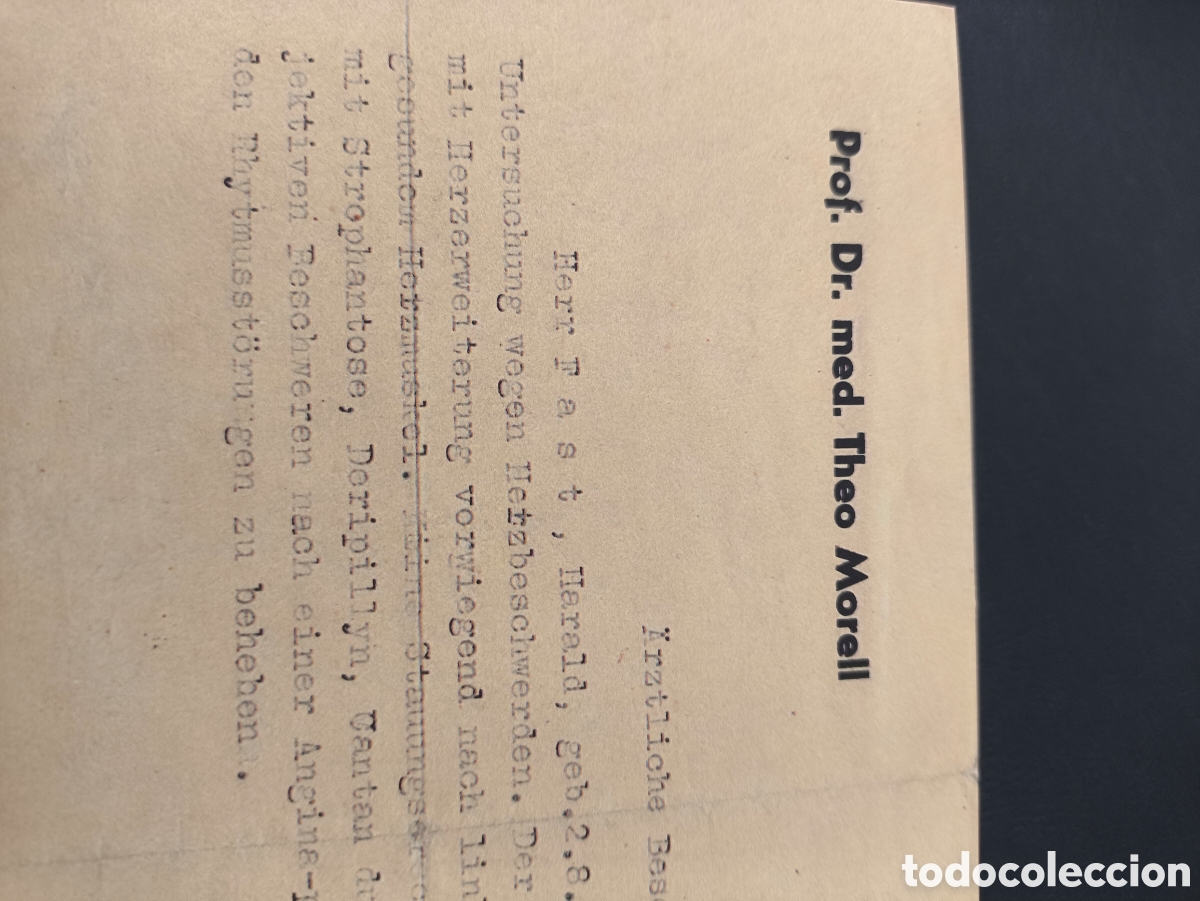 Prof. Dr. med. Theo Morell
Ärztliche Bes
Herr F a s t , Harald, geb.2.8.
Untersuchung wegen Herzbeschwerden. Der
mit Herzerweiterung vorwiegend nach lin
gesundem Herzmuskel. Keine Stauungser
mit Strophantose, Deripillyn, Cantan du
jektiven Beschweren nach einer Angina-
den Rhytmusstörungen zu behehen.
todocoleccion